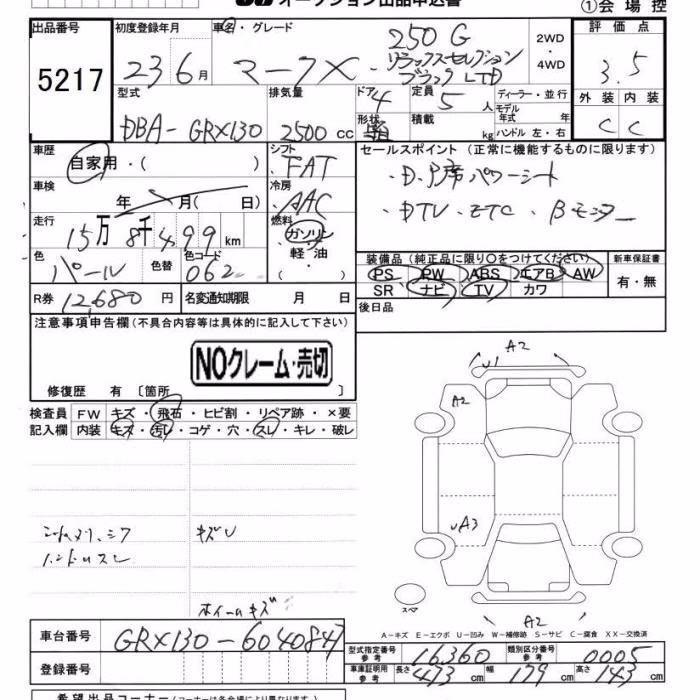 オークション出品申込書
①会場控
出品番号 初度登録年月 車名・グレード 2WD・4WD 評価点
5217 23 6月 マークX 250G リラックスセレクション ブラックLTD 3.5
型式 排気量 ドア 4 定員 5人 ディーラー・並行 外装 内装
DBA-GRX130 2500cc 形状 積載 kg モデル年式 年 ハンドル 左・右 C C
車歴 自家用・( ) シフト FAT セールスポイント (正常に機能するものに限ります)
車検 年 月( 日) 冷房 AAC ・D.P席パワーシート
・DTV.ETC.Bモニター
走行 15万8千499km 燃料 ガソリン・軽油・( )
色 パール 色替 色コード 062 装備品 (純正品に限り○をつけてください) 新車保証書
PS PW ABS エアB AW 有・無
SR ナビ TV カワ
R券 12,680円 名変通知期限 月 日 後日品
注意事項申告欄(不具合内容等は具体的に記入して下さい)
NOクレーム・売切
修復歴 有〔箇所 〕
検査員 FW キズ・飛石・ヒビ割・リペア跡・×要
記入欄 内装 キズ・汚レ・コゲ・穴・スレ・キレ・破レ
A2
U1
A2
UA3
キズU
ハンドルスレ
スペア
ホイールキズ
A2
A-キズ E-エクボ U-凹み W-補修跡 S-サビ C-腐食 XX-交換済
車台番号 GRX130-6040847 型式指定番号 参考 16360 類別区分番号 参考 0005
登録番号 車庫証明用 参考 長さ 473cm 幅 179cm 高さ 143cm
希望出品コーナー(コーナーは各会場により異なります)